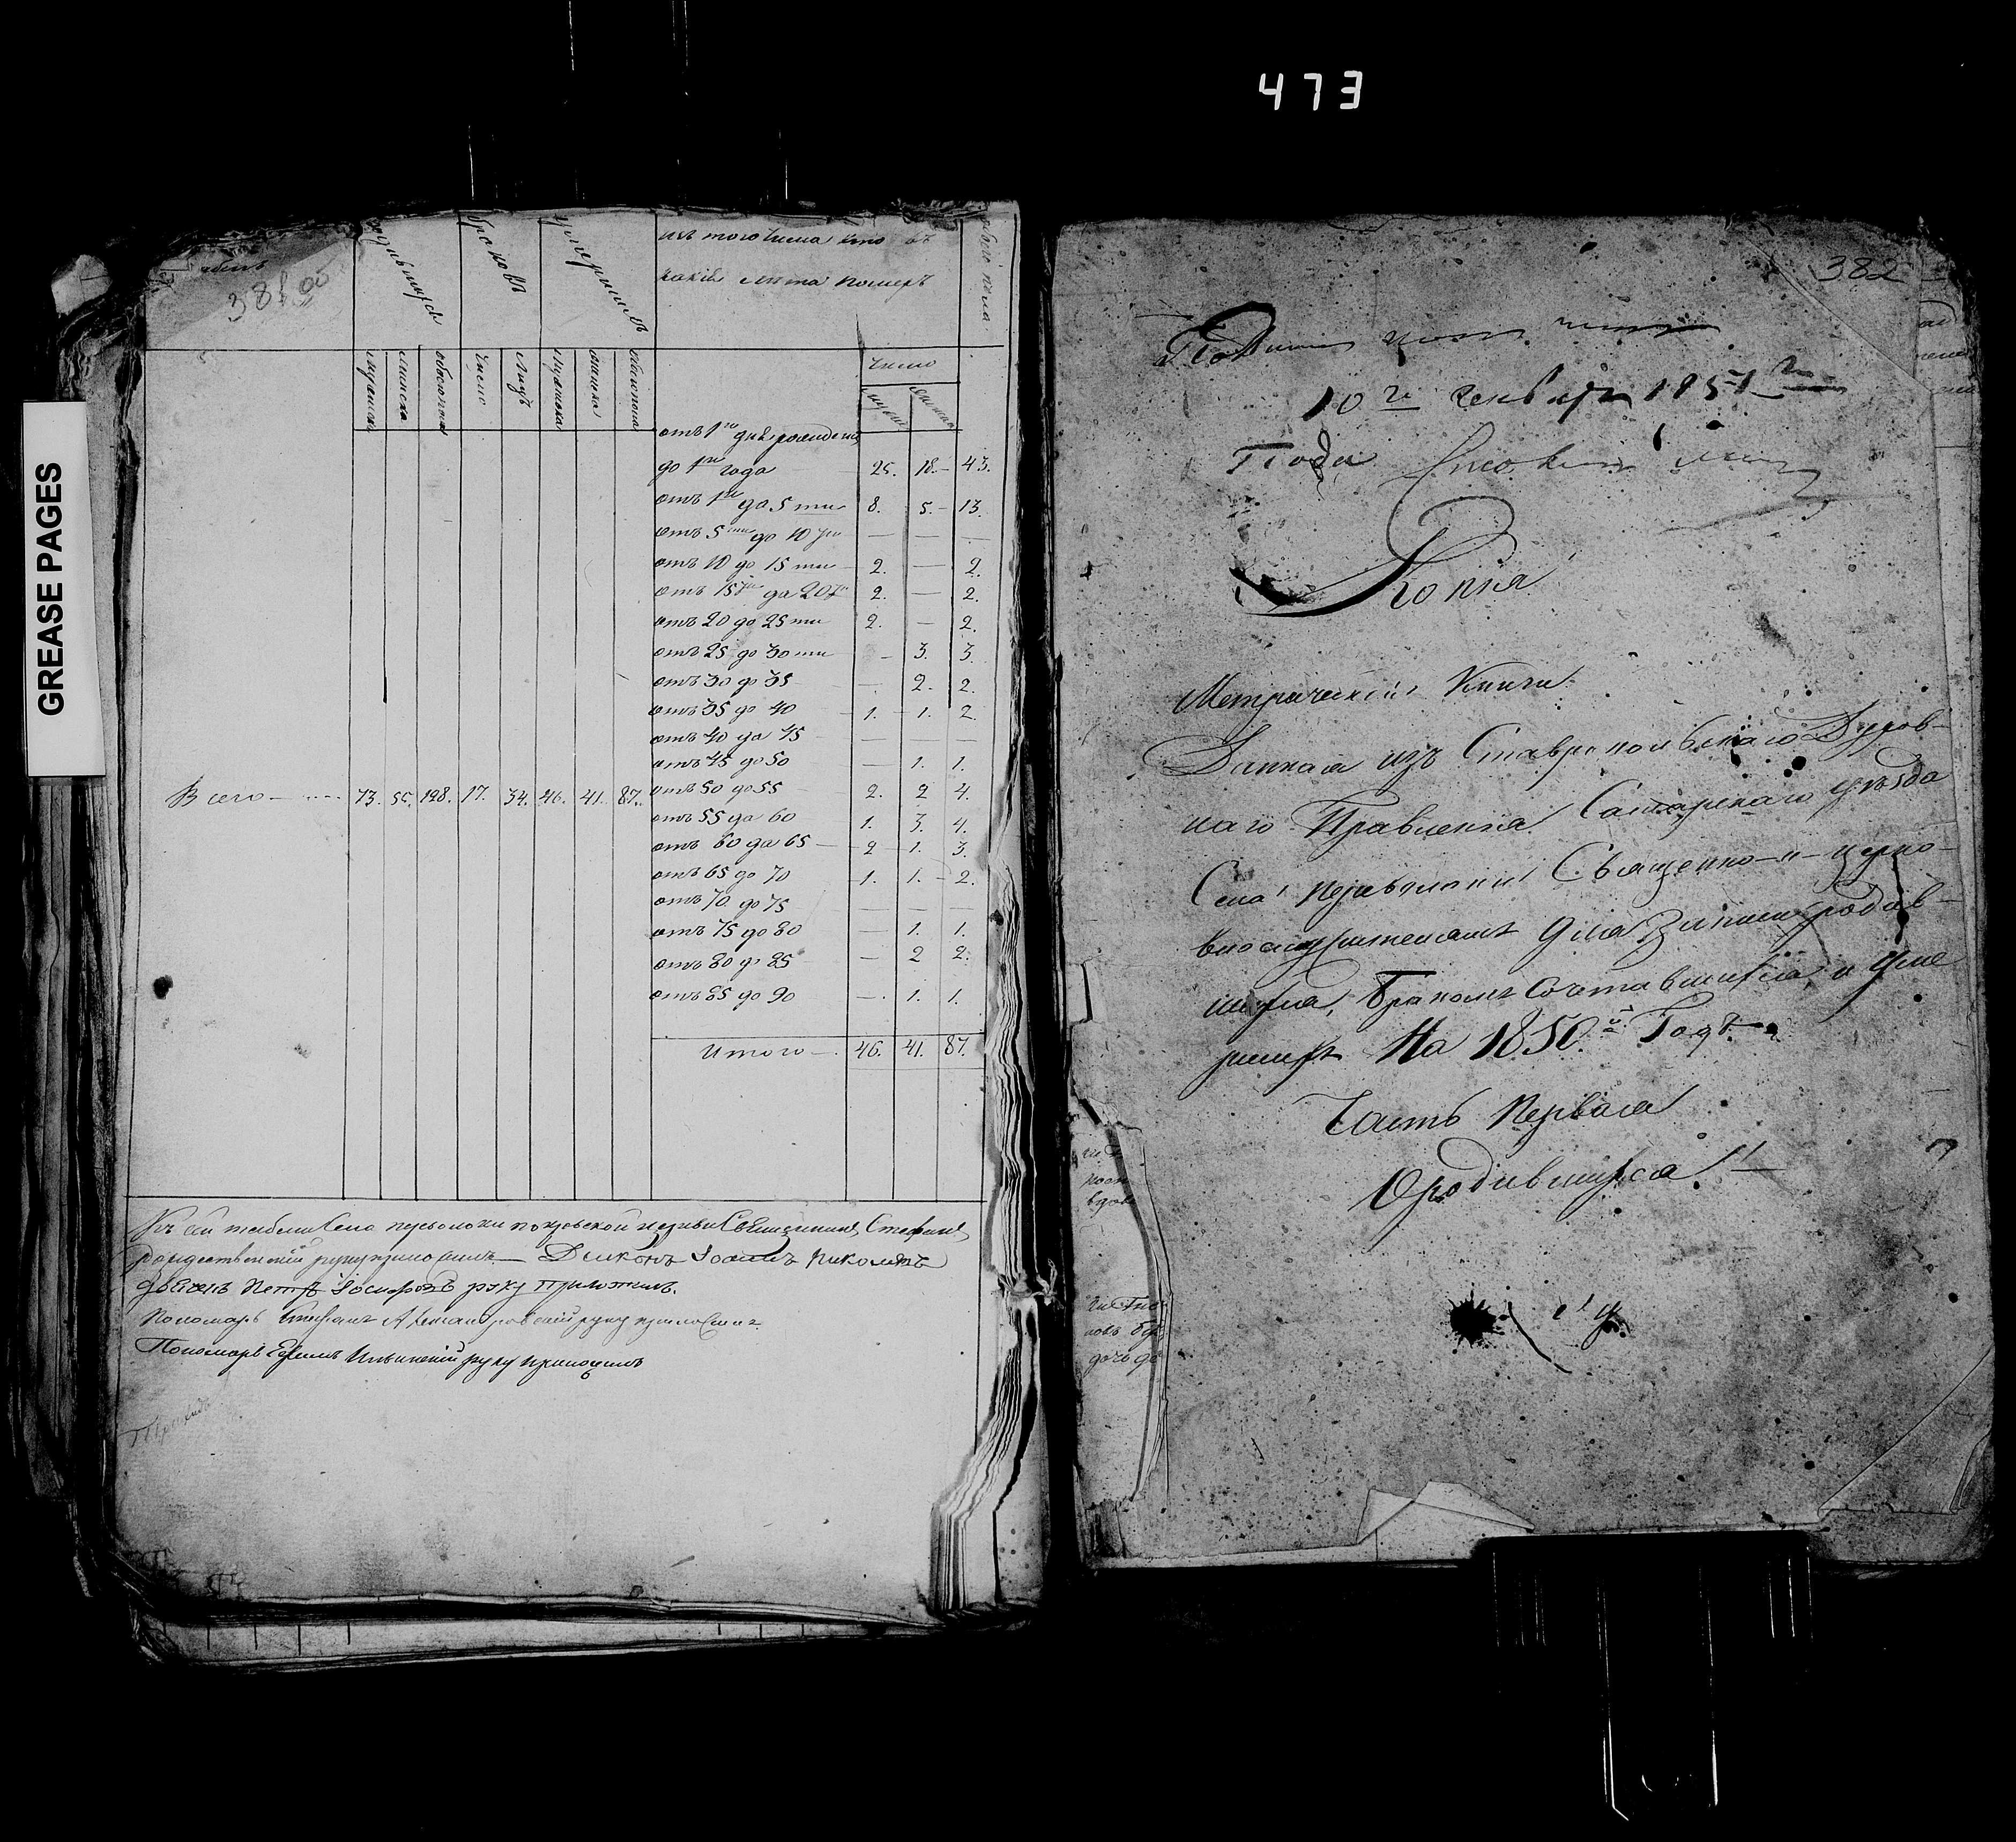 473
GREASE PAGES
381 об
родившихся
браковъ
умершихъ
изъ того числа кто въ
какiя лѣта померъ
обоего пола
мужеска
женска
обоего пола
число
лицъ
мужеска
женска
обоего пола
число
мужеск
женска
отъ 1го дня рожденiя
до 1го года 25. 18. 43.
отъ 1го до 5 ти 8. 5. 13.
отъ 5ти до 10ти — — —
отъ 10 до 15 ти 2. — 2.
отъ 15ти до 20ти 2. — 2.
отъ 20 до 25 ти 2. — 2.
отъ 25 до 30 ти — 3. 3.
отъ 30 до 35 — 2. 2.
отъ 35 до 40 1. 1. 2.
отъ 40 до 45 — — —
отъ 45 до 50 — 1. 1.
Всего 73. 55. 128. 17. 34. 46. 41. 87. отъ 50 до 55 2. 2 4.
отъ 55 до 60 1. 3. 4.
отъ 60 до 65 2 1. 3.
отъ 65 до 70 1. 1. 2.
отъ 70 до 75 — — —
отъ 75 до 80 — 1. 1.
отъ 80 до 85 — 2 2.
отъ 85 до 90 — 1. 1.
Итого 46. 41. 87.
Къ сей табели Села переволоки покровской церкви Священникъ Стефанъ
рождественскiй руку приложилъ — Дiаконъ Iоаннъ Николаевъ
дьячекъ Петръ Iосифовъ руку приложилъ.
Пономарь Стефанъ Александровскiй руку приложилъ.
Пономарь Ефимъ Ильинскiй руку приложилъ
382
10го Генваря 1851го
Года
Копiя
Метрической Книги
Данная изъ Ставропольскаго Духов-
наго Правленiя Самарскаго уѣзда
Села Переволоки Священно-и-церко-
вно служителямъ для записи родив-
шихся, Бракомъ сочетавшихся, и уме
ршихъ На 1850й Годъ
Часть Первая
О родившихся